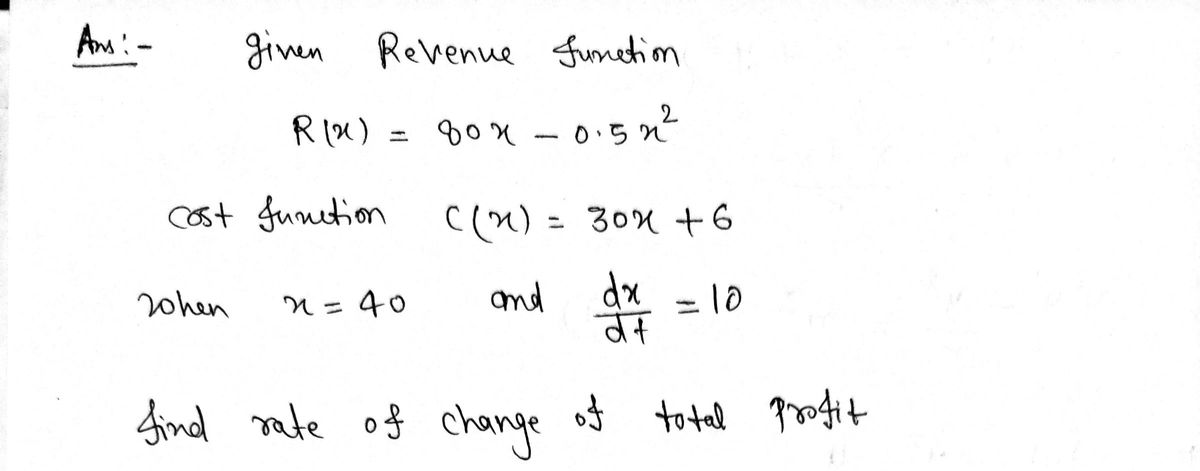 Ans :-   given Revenue function
R(x) = 80x - 0.5x²
cost function C(x) = 30x + 6
when x = 40 and dx/dt = 10
find rate of change of total profit